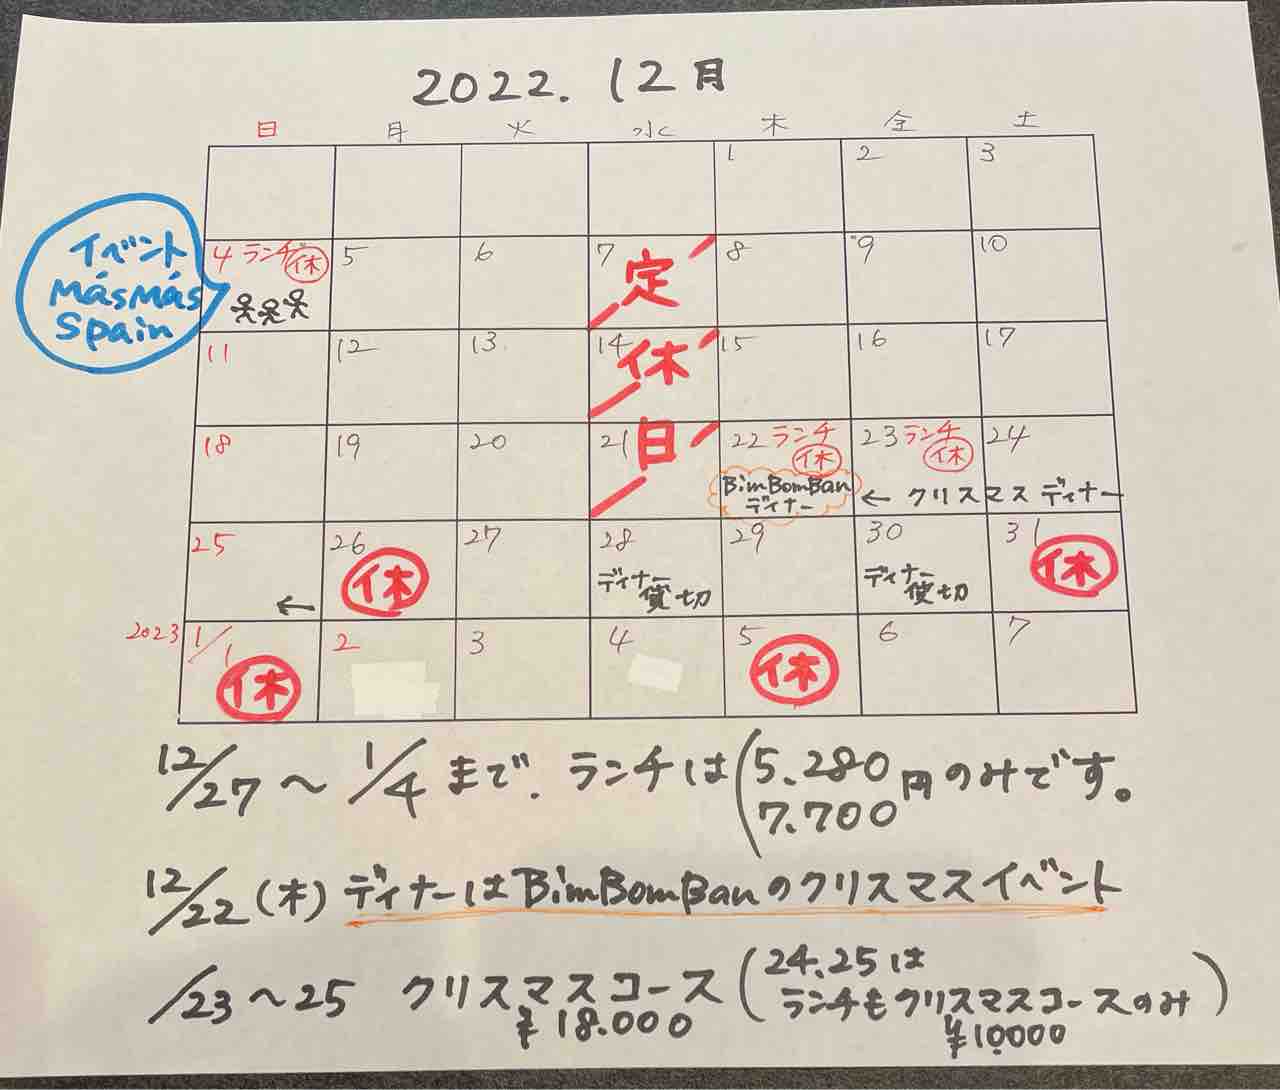 2022. 12月
日 月 火 水 木 金 土
1 2 3
イベント
MásMás
Spain
4 ランチ 休 5 6 7 定 8 9 10
11 12 13 14 休 15 16 17
18 19 20 21 日 22 ランチ 休 23 ランチ 休 24
BimBomBan
ディナー
← クリスマス ディナー
25 26 27 28 29 30 31
← 休 ディナー貸切 ディナー貸切 休
2023 1/1 2 3 4 5 6 7
休 休
12/27 〜 1/4 まで. ランチは(5.280
7.700 円のみです。
12/22 (木) ディナーはBimBomBanのクリスマスイベント
/23 〜 25 クリスマスコース (24.25は
¥18.000 ランチもクリスマスコースのみ)
¥10000